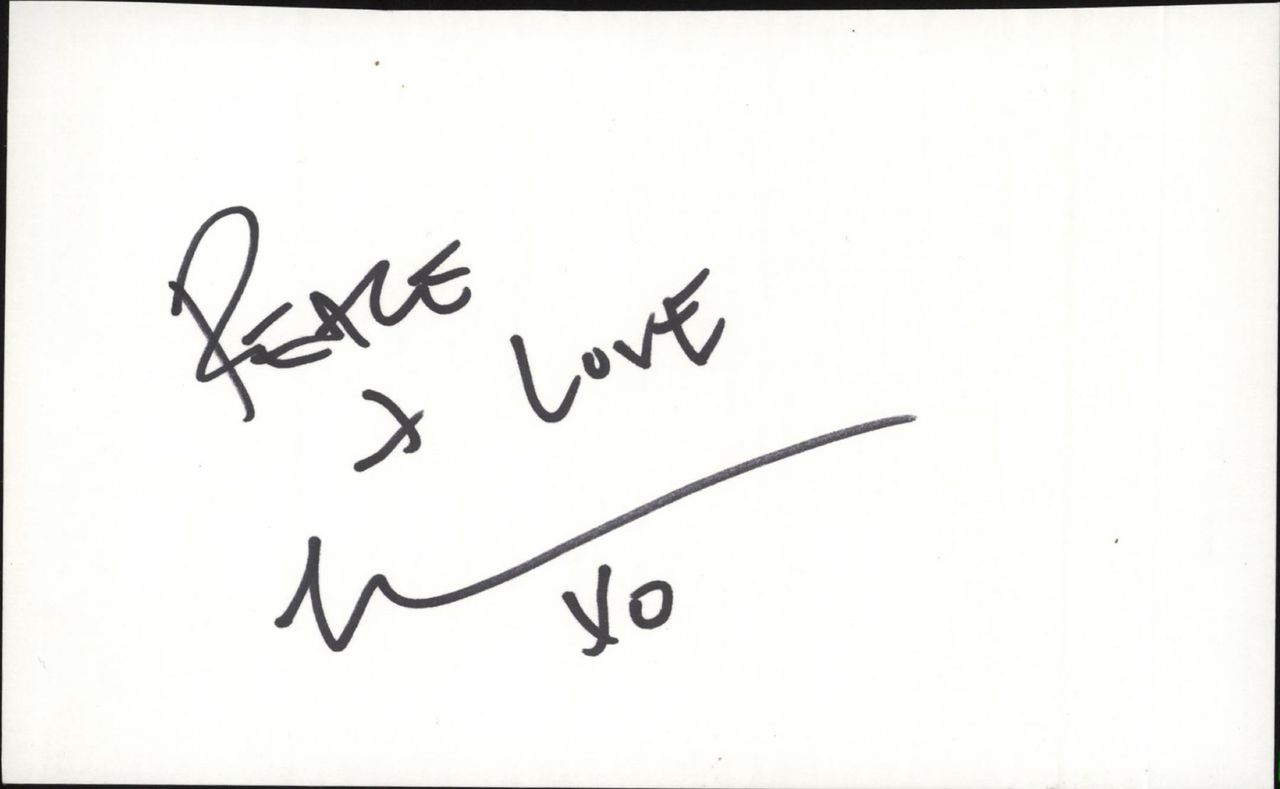 PEACE
+ LOVE
XO